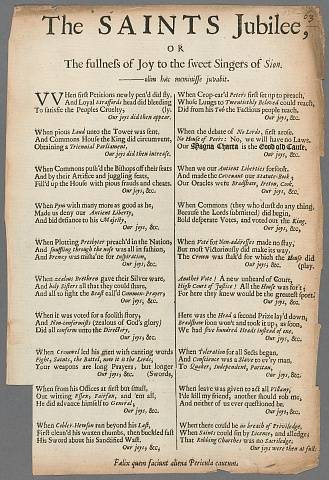 The SAINTS Jubilee,
OR
The fullness of Joy to the sweet Singers of Sion.
olim hæc meminisse juvabit.
WHen first Petitions newly pen'd did fly,
And Loyal Straffords head did bleeding
To satisfie the Peoples Cruelty, (ly,
Our joys did then appear.
When pious Laud unto the Tower was sent,
And Commons House the King did circumvent,
Obtaining a Triennial Parliament.
Our joys did then increase.
When Commons push'd the Bishops off their seats
And by their Artifice and juggling feats,
Fill'd up the House with pious frauds and cheats.
Our joys, &c.
When Pym with many more as good as he,
Made us deny our Antient Liberty,
And bid defiance to his Majesty,
Our joys, &c.
When Plotting Presbyter preach'd in the Nation,
And snuffling through the nose was all in fashion,
And Frenzy was mistake for Inspiration,
Our joys, &c.
When zealous Brethren gave their Silver ware,
And holy Sisters all that they could spare,
And all to fight the Brass call'd Common-Prayer;
Our joys, &c.
When it was voted for a foolish story,
And Non-conformists (zealous of God's glory)
Did all conform unto the Directory,
Our joys, &c.
When Cromwel led his men with canting words
Fight, Saints, the Battel, now it is the Lords;
Your weapons are long Prayers, but longer
Our joys, &c. (Swords,
When from his Offices at first but small,
Our witting Essex, Fairfax, and 'em all,
He did advance himself to General,
Our joys, &c.
When Cobler-Hewson run beyond his Last,
First clean'd his waxen thumbs, then buckled fast
His Sword about his Sanctified Wast.
Our joys, &c.
When Crop-ear'd Peters first set up to preach,
Whose Lungs to Twentiethly Beloved could reach,
Did from his Tub the Factious people teach,
Our joys, &c.
When the debate of No Lords, first arose.
No House of Peers: No, we will have no Laws.
Our Magna Charta is the Good old Cause,
Our joys, &c.
When we our Antient Liberties forsook,
And made the Covenant our Statute-Book,
Our Oracles were Bradshaw, Ireton, Cook,
Our joys, &c.
When Commons (they who durst do any thing,
Because the Lords submitted) did begin,
Bold desperate Votes, and voted out the King.
Our joys, &c.
When Vote for Non-Addresses made no stay,
But most Victoriously did make its way,
The Crown was stak'd for which the House did
Our joys, &c. (play.
Another Vote! A new unheard of Court,
High Court of Justice! All the House was for't;
For here they knew would be the greatest sport,
Our joys, &c.
Here was the Head a second Prize lay'd down,
Bradshaw soon won't and took it up as soon,
We had five hundred Heads instead of one.
Our joys, &c.
When Toleration for all Sects began,
And Conscience was a Slave to ev'ry man,
To Quaker, Independent, Puritan,
Our joys, &c.
When leave was given to act all Villany,
I'de kill my friend, another should rob me,
And neither of us ever questioned be.
Our joys, &c.
When there could be no breach of Priviledge,
When Saints could sin by License, and alledge;
That Robbing Churches was no Sacriledge,
Our joys were then at full.
Felix quem faciunt aliena Pericula cautum.